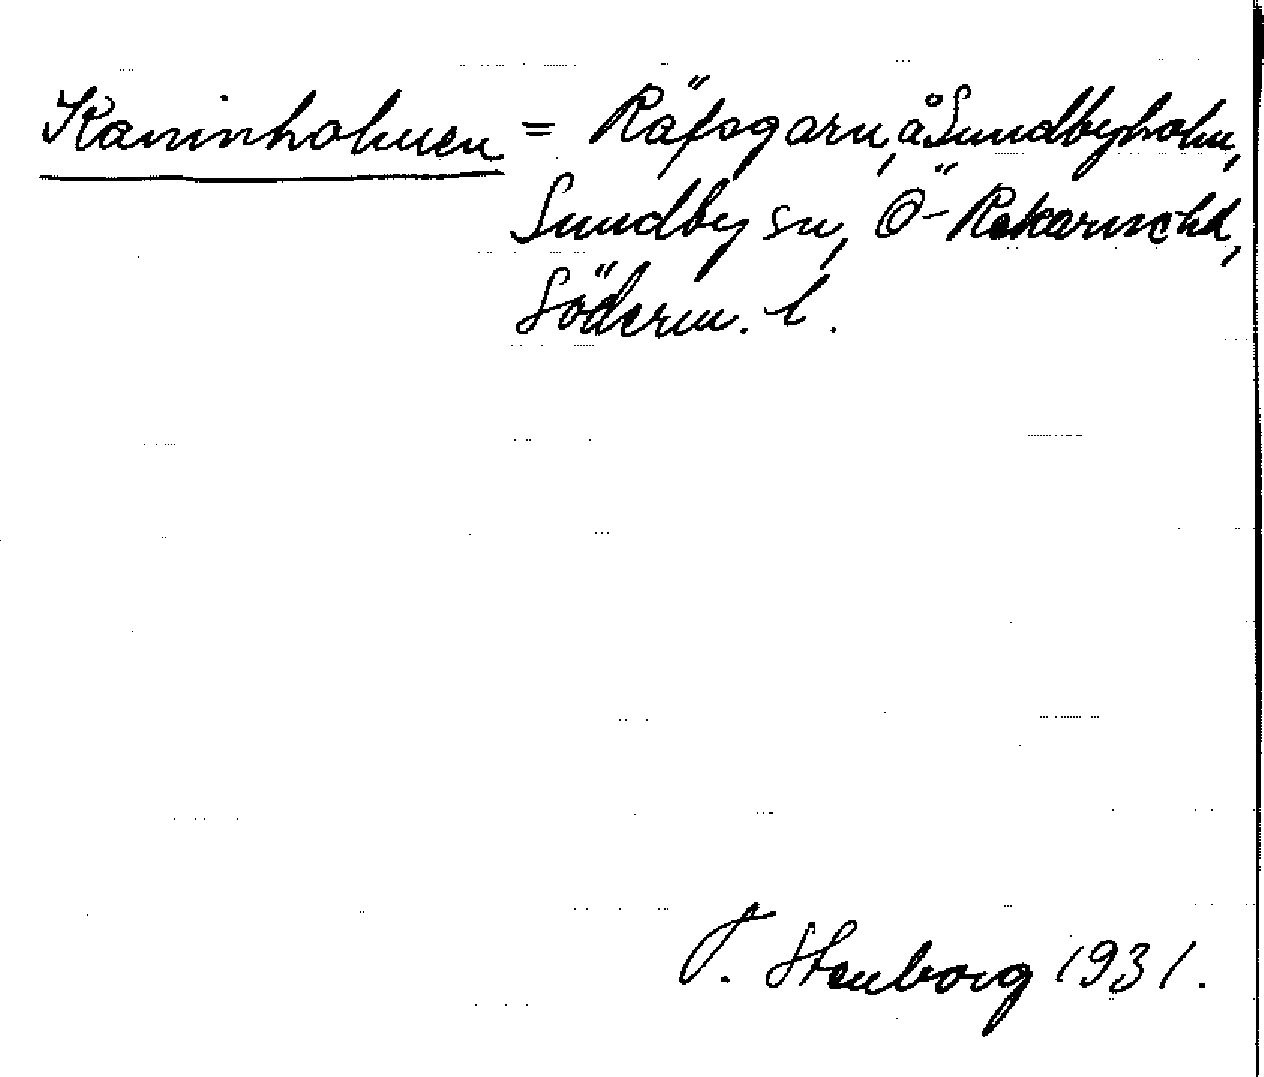 Kaninholmen = Räfsgarn, å Sundbyholm,
Sundby sn, Ö-Rekarnehd,
Söderm. l.
T. Stenborg 1931.